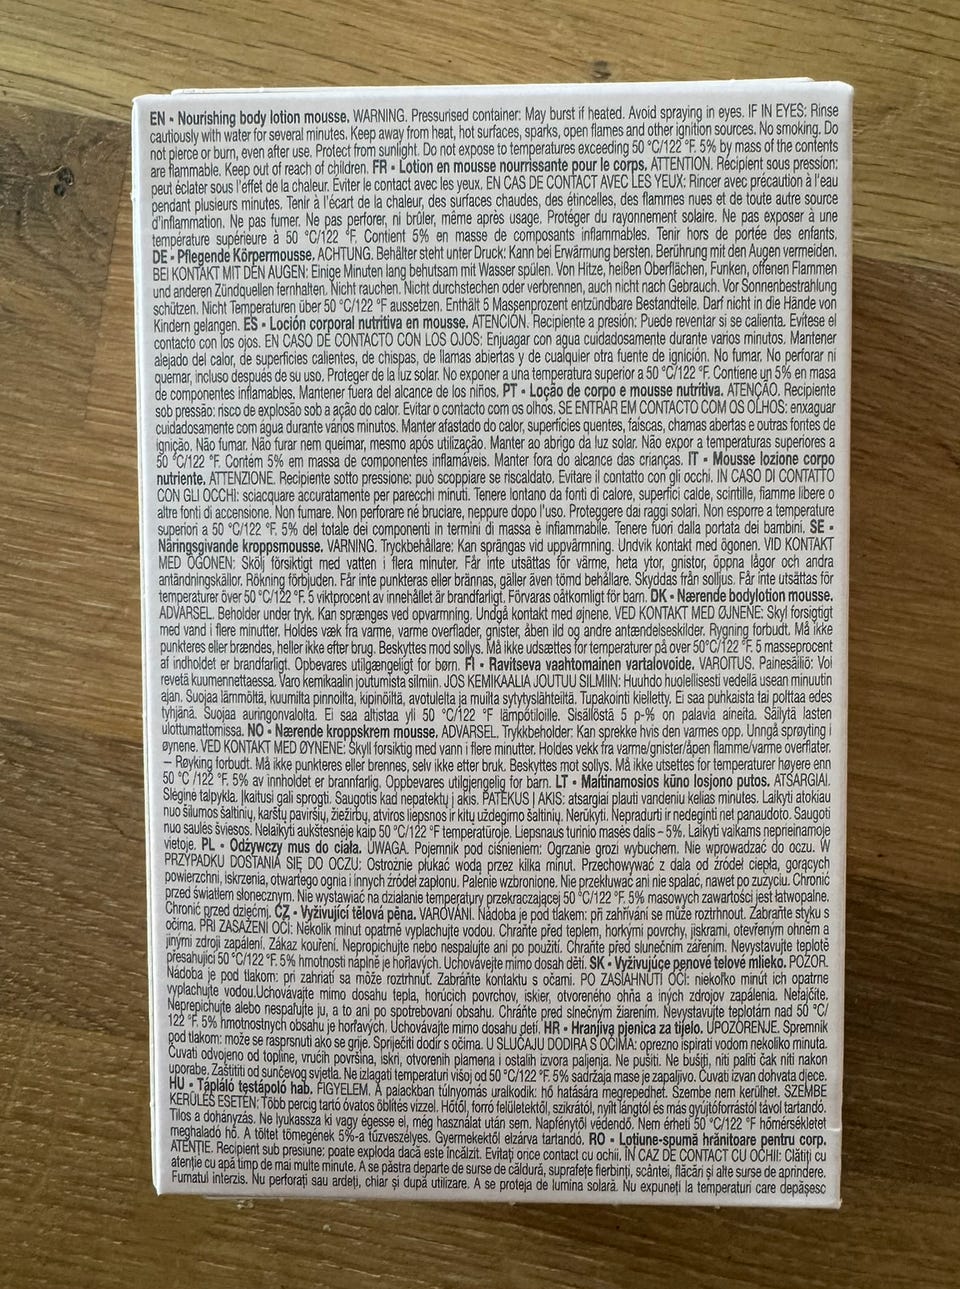 EN • Nourishing body lotion mousse. WARNING. Pressurised container: May burst if heated. Avoid spraying in eyes. IF IN EYES: Rinse
cautiously with water for several minutes. Keep away from heat, hot surfaces, sparks, open flames and other ignition sources. No smoking. Do
not pierce or burn, even after use. Protect from sunlight. Do not expose to temperatures exceeding 50 °C/122 °F. 5% by mass of the contents
are flammable. Keep out of reach of children. FR • Lotion en mousse nourrissante pour le corps. ATTENTION. Récipient sous pression:
peut éclater sous l'effet de la chaleur. Éviter le contact avec les yeux. EN CAS DE CONTACT AVEC LES YEUX: Rincer avec précaution à l'eau
pendant plusieurs minutes. Tenir à l'écart de la chaleur, des surfaces chaudes, des étincelles, des flammes nues et de toute autre source
d'inflammation. Ne pas fumer. Ne pas perforer, ni brûler, même après usage. Protéger du rayonnement solaire. Ne pas exposer à une
température supérieure à 50 °C/122 °F. Contient 5% en masse de composants inflammables. Tenir hors de portée des enfants.
DE • Pflegende Körpermousse. ACHTUNG. Behälter steht unter Druck: Kann bei Erwärmung bersten. Berührung mit den Augen vermeiden.
BEI KONTAKT MIT DEN AUGEN: Einige Minuten lang behutsam mit Wasser spülen. Von Hitze, heißen Oberflächen, Funken, offenen Flammen
und anderen Zündquellen fernhalten. Nicht rauchen. Nicht durchstechen oder verbrennen, auch nicht nach Gebrauch. Vor Sonnenbestrahlung
schützen. Nicht Temperaturen über 50 °C/122 °F aussetzen. Enthält 5 Massenprozent entzündbare Bestandteile. Darf nicht in die Hände von
Kindern gelangen. ES • Loción corporal nutritiva en mousse. ATENCIÓN. Recipiente a presión: Puede reventar si se calienta. Evítese el
contacto con los ojos. EN CASO DE CONTACTO CON LOS OJOS: Enjuagar con agua cuidadosamente durante varios minutos. Mantener
alejado del calor, de superficies calientes, de chispas, de llamas abiertas y de cualquier otra fuente de ignición. No fumar. No perforar ni
quemar, incluso después de su uso. Proteger de la luz solar. No exponer a una temperatura superior a 50 °C/122 °F. Contiene un 5% en masa
de componentes inflamables. Mantener fuera del alcance de los niños. PT • Loção de corpo e mousse nutritiva. ATENÇÃO. Recipiente
sob pressão: risco de explosão sob a ação do calor. Evitar o contacto com os olhos. SE ENTRAR EM CONTACTO COM OS OLHOS: enxaguar
cuidadosamente com água durante vários minutos. Manter afastado do calor, superfícies quentes, faíscas, chamas abertas e outras fontes de
ignição. Não fumar. Não furar nem queimar, mesmo após utilização. Manter ao abrigo da luz solar. Não expor a temperaturas superiores a
50 °C/122 °F. Contém 5% em massa de componentes inflamáveis. Manter fora do alcance das crianças. IT • Mousse lozione corpo
nutriente. ATTENZIONE. Recipiente sotto pressione: può scoppiare se riscaldato. Evitare il contatto con gli occhi. IN CASO DI CONTATTO
CON GLI OCCHI: sciacquare accuratamente per parecchi minuti. Tenere lontano da fonti di calore, superfici calde, scintille, fiamme libere o
altre fonti di accensione. Non fumare. Non perforare né bruciare, neppure dopo l'uso. Proteggere dai raggi solari. Non esporre a temperature
superiori a 50 °C/122 °F. 5% del totale dei componenti in termini di massa è infiammabile. Tenere fuori dalla portata dei bambini. SE •
Näringsgivande kroppsmousse. VARNING. Tryckbehållare: Kan sprängas vid uppvärmning. Undvik kontakt med ögonen. VID KONTAKT
MED ÖGONEN: Skölj försiktigt med vatten i flera minuter. Får inte utsättas för värme, heta ytor, gnistor, öppna lågor och andra
antändningskällor. Rökning förbjuden. Får inte punkteras eller brännas, gäller även tömd behållare. Skyddas från solljus. Får inte utsättas för
temperaturer över 50 °C/122 °F. 5 viktprocent av innehållet är brandfarligt. Förvaras oåtkomligt för barn. DK • Nærende bodylotion mousse.
ADVARSEL. Beholder under tryk. Kan sprænges ved opvarmning. Undgå kontakt med øjnene. VED KONTAKT MED ØJNENE: Skyl forsigtigt
med vand i flere minutter. Holdes væk fra varme, varme overflader, gnister, åben ild og andre antændelseskilder. Rygning forbudt. Må ikke
punkteres eller brændes, heller ikke efter brug. Beskyttes mod sollys. Må ikke udsættes for temperaturer på over 50°C/122 °F. 5 masseprocent
af indholdet er brandfarligt. Opbevares utilgængeligt for børn. FI • Ravitseva vaahtomainen vartalovoide. VAROITUS. Painesäiliö: Voi
revetä kuumennettaessa. Varo kemikaalin joutumista silmiin. JOS KEMIKAALIA JOUTUU SILMIIN: Huuhdo huolellisesti vedellä usean minuutin
ajan. Suojaa lämmöltä, kuumilta pinnoilta, kipinöiltä, avotulelta ja muilta sytytyslähteiltä. Tupakointi kielletty. Ei saa puhkaista tai polttaa edes
tyhjänä. Suojaa auringonvalolta. Ei saa altistaa yli 50 °C/122 °F lämpötiloille. Sisällöstä 5 p-% on palavia aineita. Säilytä lasten
ulottumattomissa. NO • Nærende kroppskrem mousse. ADVARSEL. Trykkbeholder: Kan sprekke hvis den varmes opp. Unngå sprøyting i
øynene. VED KONTAKT MED ØYNENE: Skyll forsiktig med vann i flere minutter. Holdes vekk fra varme/gnister/åpen flamme/varme overflater.
– Røyking forbudt. Må ikke punkteres eller brennes, selv ikke etter bruk. Beskyttes mot sollys. Må ikke utsettes for temperaturer høyere enn
50 °C /122 °F. 5% av innholdet er brannfarlig. Oppbevares utilgjengelig for barn. LT • Maitinamosios kūno losjono putos. ATSARGIAI.
Slėginė talpykla. Įkaitusi gali sprogti. Saugotis kad nepatektų į akis. PATEKUS Į AKIS: atsargiai plauti vandeniu kelias minutes. Laikyti atokiau
nuo šilumos šaltinių, karštų paviršių, žiežirbų, atviros liepsnos ir kitų uždegimo šaltinių. Nerūkyti. Nepradurti ir nedeginti net panaudoto. Saugoti
nuo saulės šviesos. Nelaikyti aukštesnėje kaip 50 °C/122 °F temperatūroje. Liepsnaus turinio masės dalis – 5%. Laikyti vaikams neprieinamoje
vietoje. PL • Odżywczy mus do ciała. UWAGA. Pojemnik pod ciśnieniem: Ogrzanie grozi wybuchem. Nie wprowadzać do oczu. W
PRZYPADKU DOSTANIA SIĘ DO OCZU: Ostrożnie płukać wodą przez kilka minut. Przechowywać z dala od źródeł ciepła, gorących
powierzchni, iskrzenia, otwartego ognia i innych źródeł zapłonu. Palenie wzbronione. Nie przekłuwać ani nie spalać, nawet po zużyciu. Chronić
przed światłem słonecznym. Nie wystawiać na działanie temperatury przekraczającej 50 °C/122 °F. 5% masowych zawartości jest łatwopalne.
Chronić przed dziećmi. CZ • Vyživující tělová pěna. VAROVÁNÍ. Nádoba je pod tlakem: při zahřívání se může roztrhnout. Zabraňte styku s
očima. PŘI ZASAŽENÍ OČÍ: Několik minut opatrně vyplachujte vodou. Chraňte před teplem, horkými povrchy, jiskrami, otevřeným ohněm a
jinými zdroji zapálení. Zákaz kouření. Nepropichujte nebo nespalujte ani po použití. Chraňte před slunečním zářením. Nevystavujte teplotě
přesahující 50 °C/122 °F. 5% hmotnosti náplně je hořlavých. Uchovávejte mimo dosah dětí. SK • Vyživujúce penové telové mlieko. POZOR.
Nádoba je pod tlakom: pri zahriatí sa môže roztrhnúť. Zabráňte kontaktu s očami. PO ZASIAHNUTÍ OČÍ: niekoľko minút ich opatrne
vyplachujte vodou.Uchovávajte mimo dosahu tepla, horúcich povrchov, iskier, otvoreného ohňa a iných zdrojov zapálenia. Nefajčite.
Neprepichujte alebo nespaľujte ju, a to ani po spotrebovaní obsahu. Chráňte pred slnečným žiarením. Nevystavujte teplotám nad 50 °C/
122 °F. 5% hmotnostných obsahu je horľavých. Uchovávajte mimo dosahu detí. HR • Hranjiva pjenica za tijelo. UPOZORENJE. Spremnik
pod tlakom: može se rasprsnuti ako se grije. Spriječiti dodir s očima. U SLUČAJU DODIRA S OČIMA: oprezno ispirati vodom nekoliko minuta.
Čuvati odvojeno od topline, vrućih površina, iskri, otvorenih plamena i ostalih izvora paljenja. Ne pušiti. Ne bušiti, niti paliti čak niti nakon
uporabe. Zaštititi od sunčevog svjetla. Ne izlagati temperaturi višoj od 50 °C/122 °F. 5% sadržaja mase je zapaljivo. Čuvati izvan dohvata djece.
HU • Tápláló testápoló hab. FIGYELEM. A palackban túlnyomás uralkodik: hő hatására megrepedhet. Szembe nem kerülhet. SZEMBE
KERÜLÉS ESETÉN: Több percig tartó óvatos öblítés vízzel. Hőtől, forró felületektől, szikrától, nyílt lángtól és más gyújtóforrástól távol tartandó.
Tilos a dohányzás. Ne lyukassza ki vagy égesse el, még használat után sem. Napfénytől védendő. Nem érheti 50 °C/122 °F hőmérsékletet
meghaladó hő. A töltet tömegének 5%-a tűzveszélyes. Gyermekektől elzárva tartandó. RO • Loțiune-spumă hrănitoare pentru corp.
ATENȚIE. Recipient sub presiune: poate exploda dacă este încălzit. Evitați orice contact cu ochii. ÎN CAZ DE CONTACT CU OCHII: Clătiți cu
atenție cu apă timp de mai multe minute. A se păstra departe de surse de căldură, suprafețe fierbinți, scântei, flăcări și alte surse de aprindere.
Fumatul interzis. Nu perforați sau ardeți, chiar și după utilizare. A se proteja de lumina solară. Nu expuneți la temperaturi care depășesc